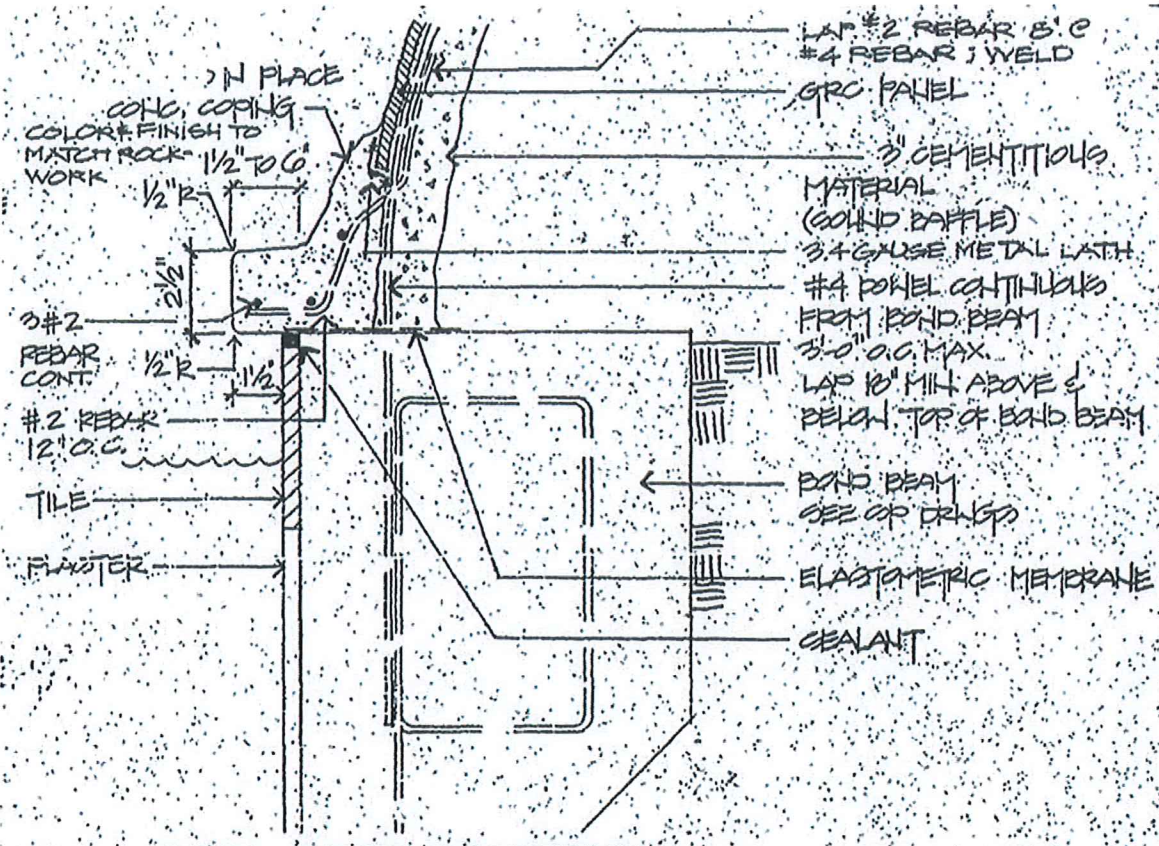 IN PLACE
CONC. COPING
COLOR & FINISH TO
MATCH ROCK-
WORK
1 1/2" TO 6"
1/2" R
2 1/2"
3 #2
REBAR
CONT.
1/2" R
1 1/2"
#2 REBAR
12" O.C.
TILE
PLASTER
LAP #2 REBAR 8" @
#4 REBAR; WELD
GRC PANEL
3" CEMENTITIOUS
MATERIAL
(SOUND BAFFLE)
3.4 GAUGE METAL LATH
#4 DOWEL CONTINUOUS
FROM BOND BEAM
3'-0" O.C. MAX.
LAP 18" MIN. ABOVE &
BELOW TOP OF BOND BEAM
BOND BEAM
SEE SP DRWGS
ELASTOMETRIC MEMBRANE
SEALANT